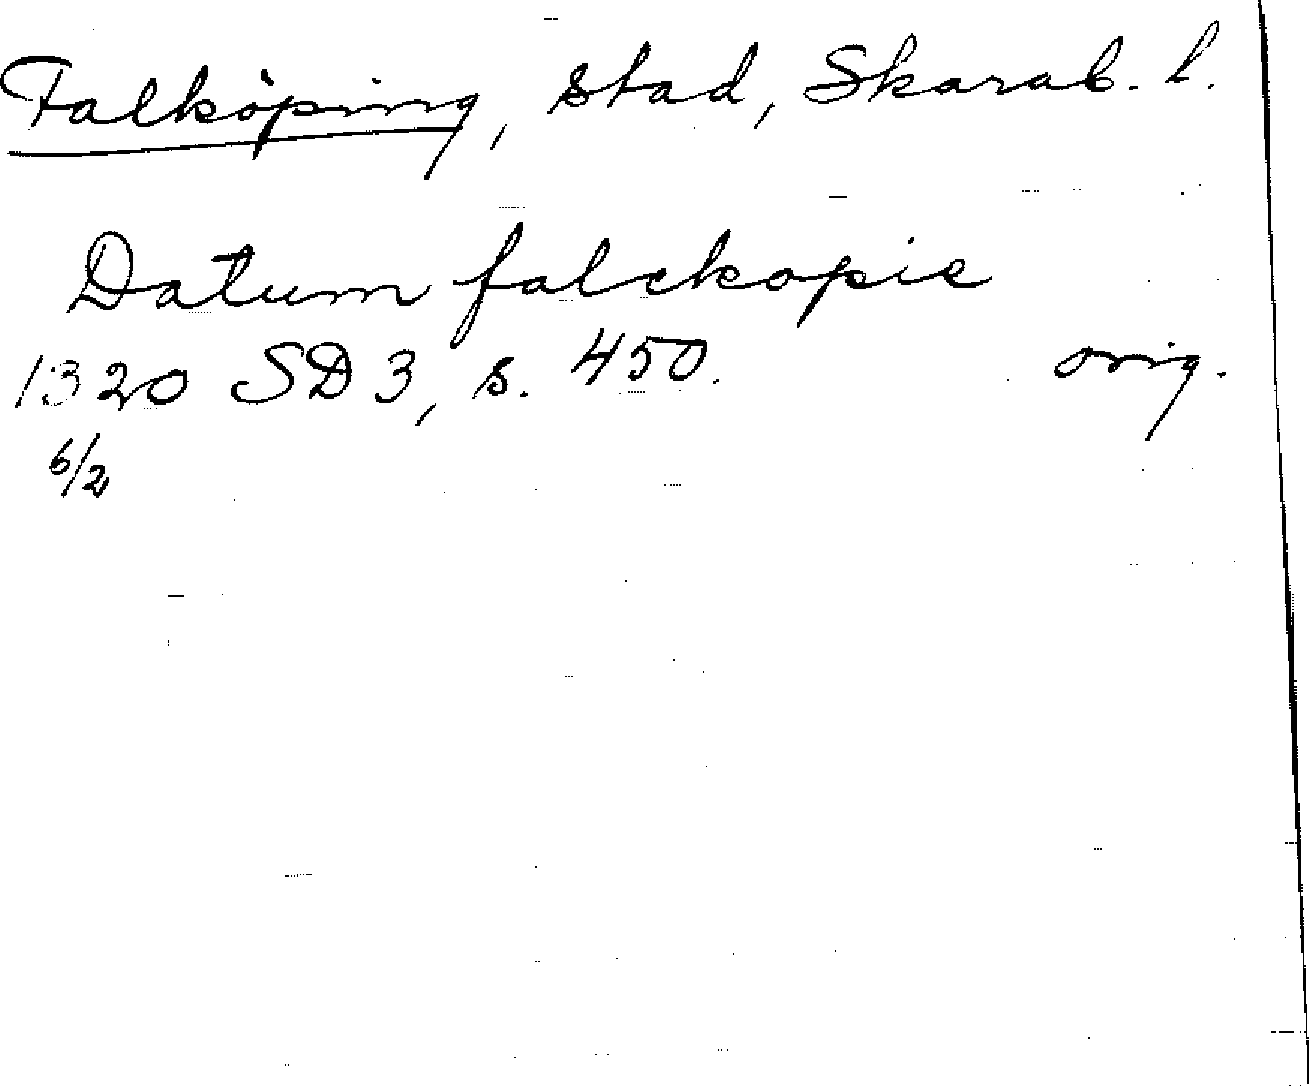 Falköping, stad, Skarab. l.
Datum falckopie
1320 SD 3, s. 450. orig.
6/2